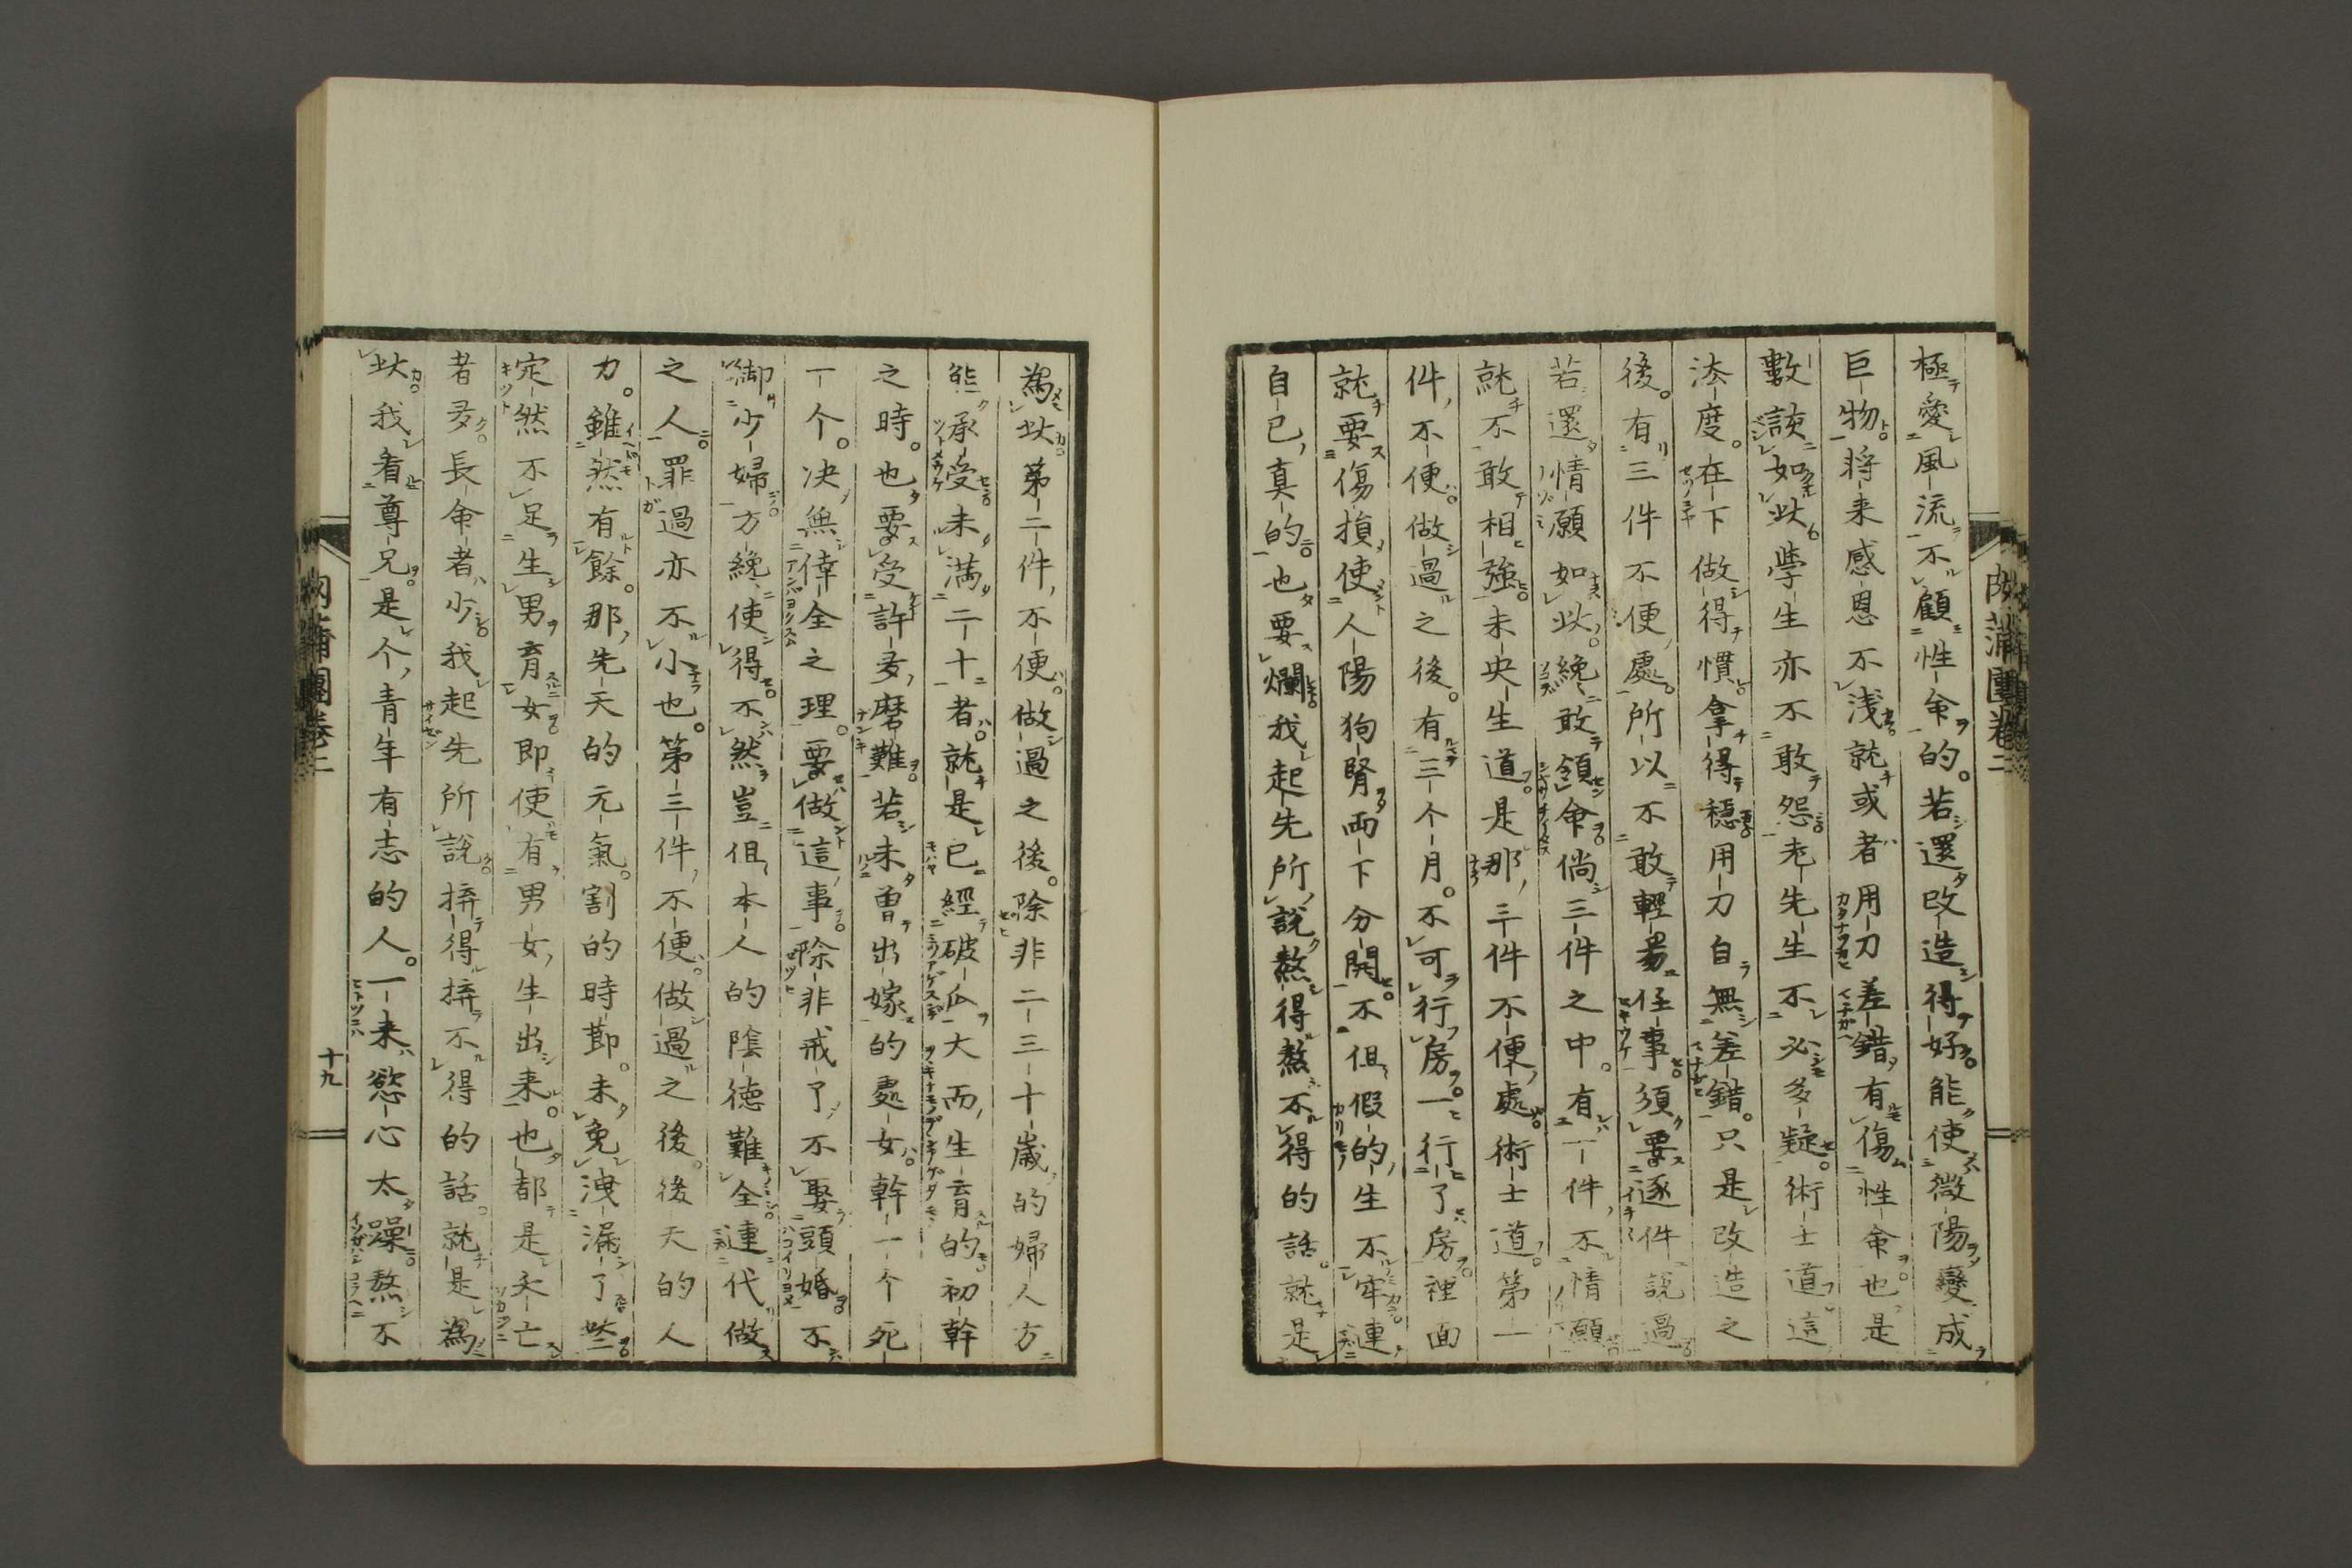 肉蒲團卷二
極愛風流不顧性命的。若還改造得好。能使微陽變成
巨物。将来感恩不浅。就或者用刀差錯有傷性命也是
數該如此。學生亦不敢怨老先生。不必多疑。術士道這
法度。在下做得慣。拿得穩。用刀自無差錯。只是改造之
後。有三件不便處。所以不敢輕易任事。須要逐件說過。
若還情願如此。纔敢領命。倘三件之中。有一件不情願。
就不敢相強。未央生道。是那三件不便處。術士道。第一
件不便。做過之後。有三个月。不可行房。一行了房。裡面
就要傷損使人陽狗腎両下分開。不但假的生不牢。連
自己真的也要爛。我起先所說熬得熬不得的話。就是
為此。第二件不便。做過之後。除非二三十歲的婦人方
能承受。未滿二十者。就是已經破瓜大而生育的初幹
之時。也要受許多磨難。若未曽出嫁的處女。幹一个死
一个。决無倖全之理。要做這事。除非戒了不娶頭婚。不
御少婦。方纔使得。不然豈但本人的陰德難全連代做
之人罪過亦不小也。第三件不便。做過之後。後天的人
力。雖然有餘。那先天的元氣。割的時節。未免洩漏了些。
定然不足。生男育女。即使有男女生出来。也都是夭亡
者多。長命者少。我起先所說。拚得拚不得的話。就是為
此。我看尊兄。是个青年有志的人。一来慾心太躁。熬不
肉蒲團卷二
十九